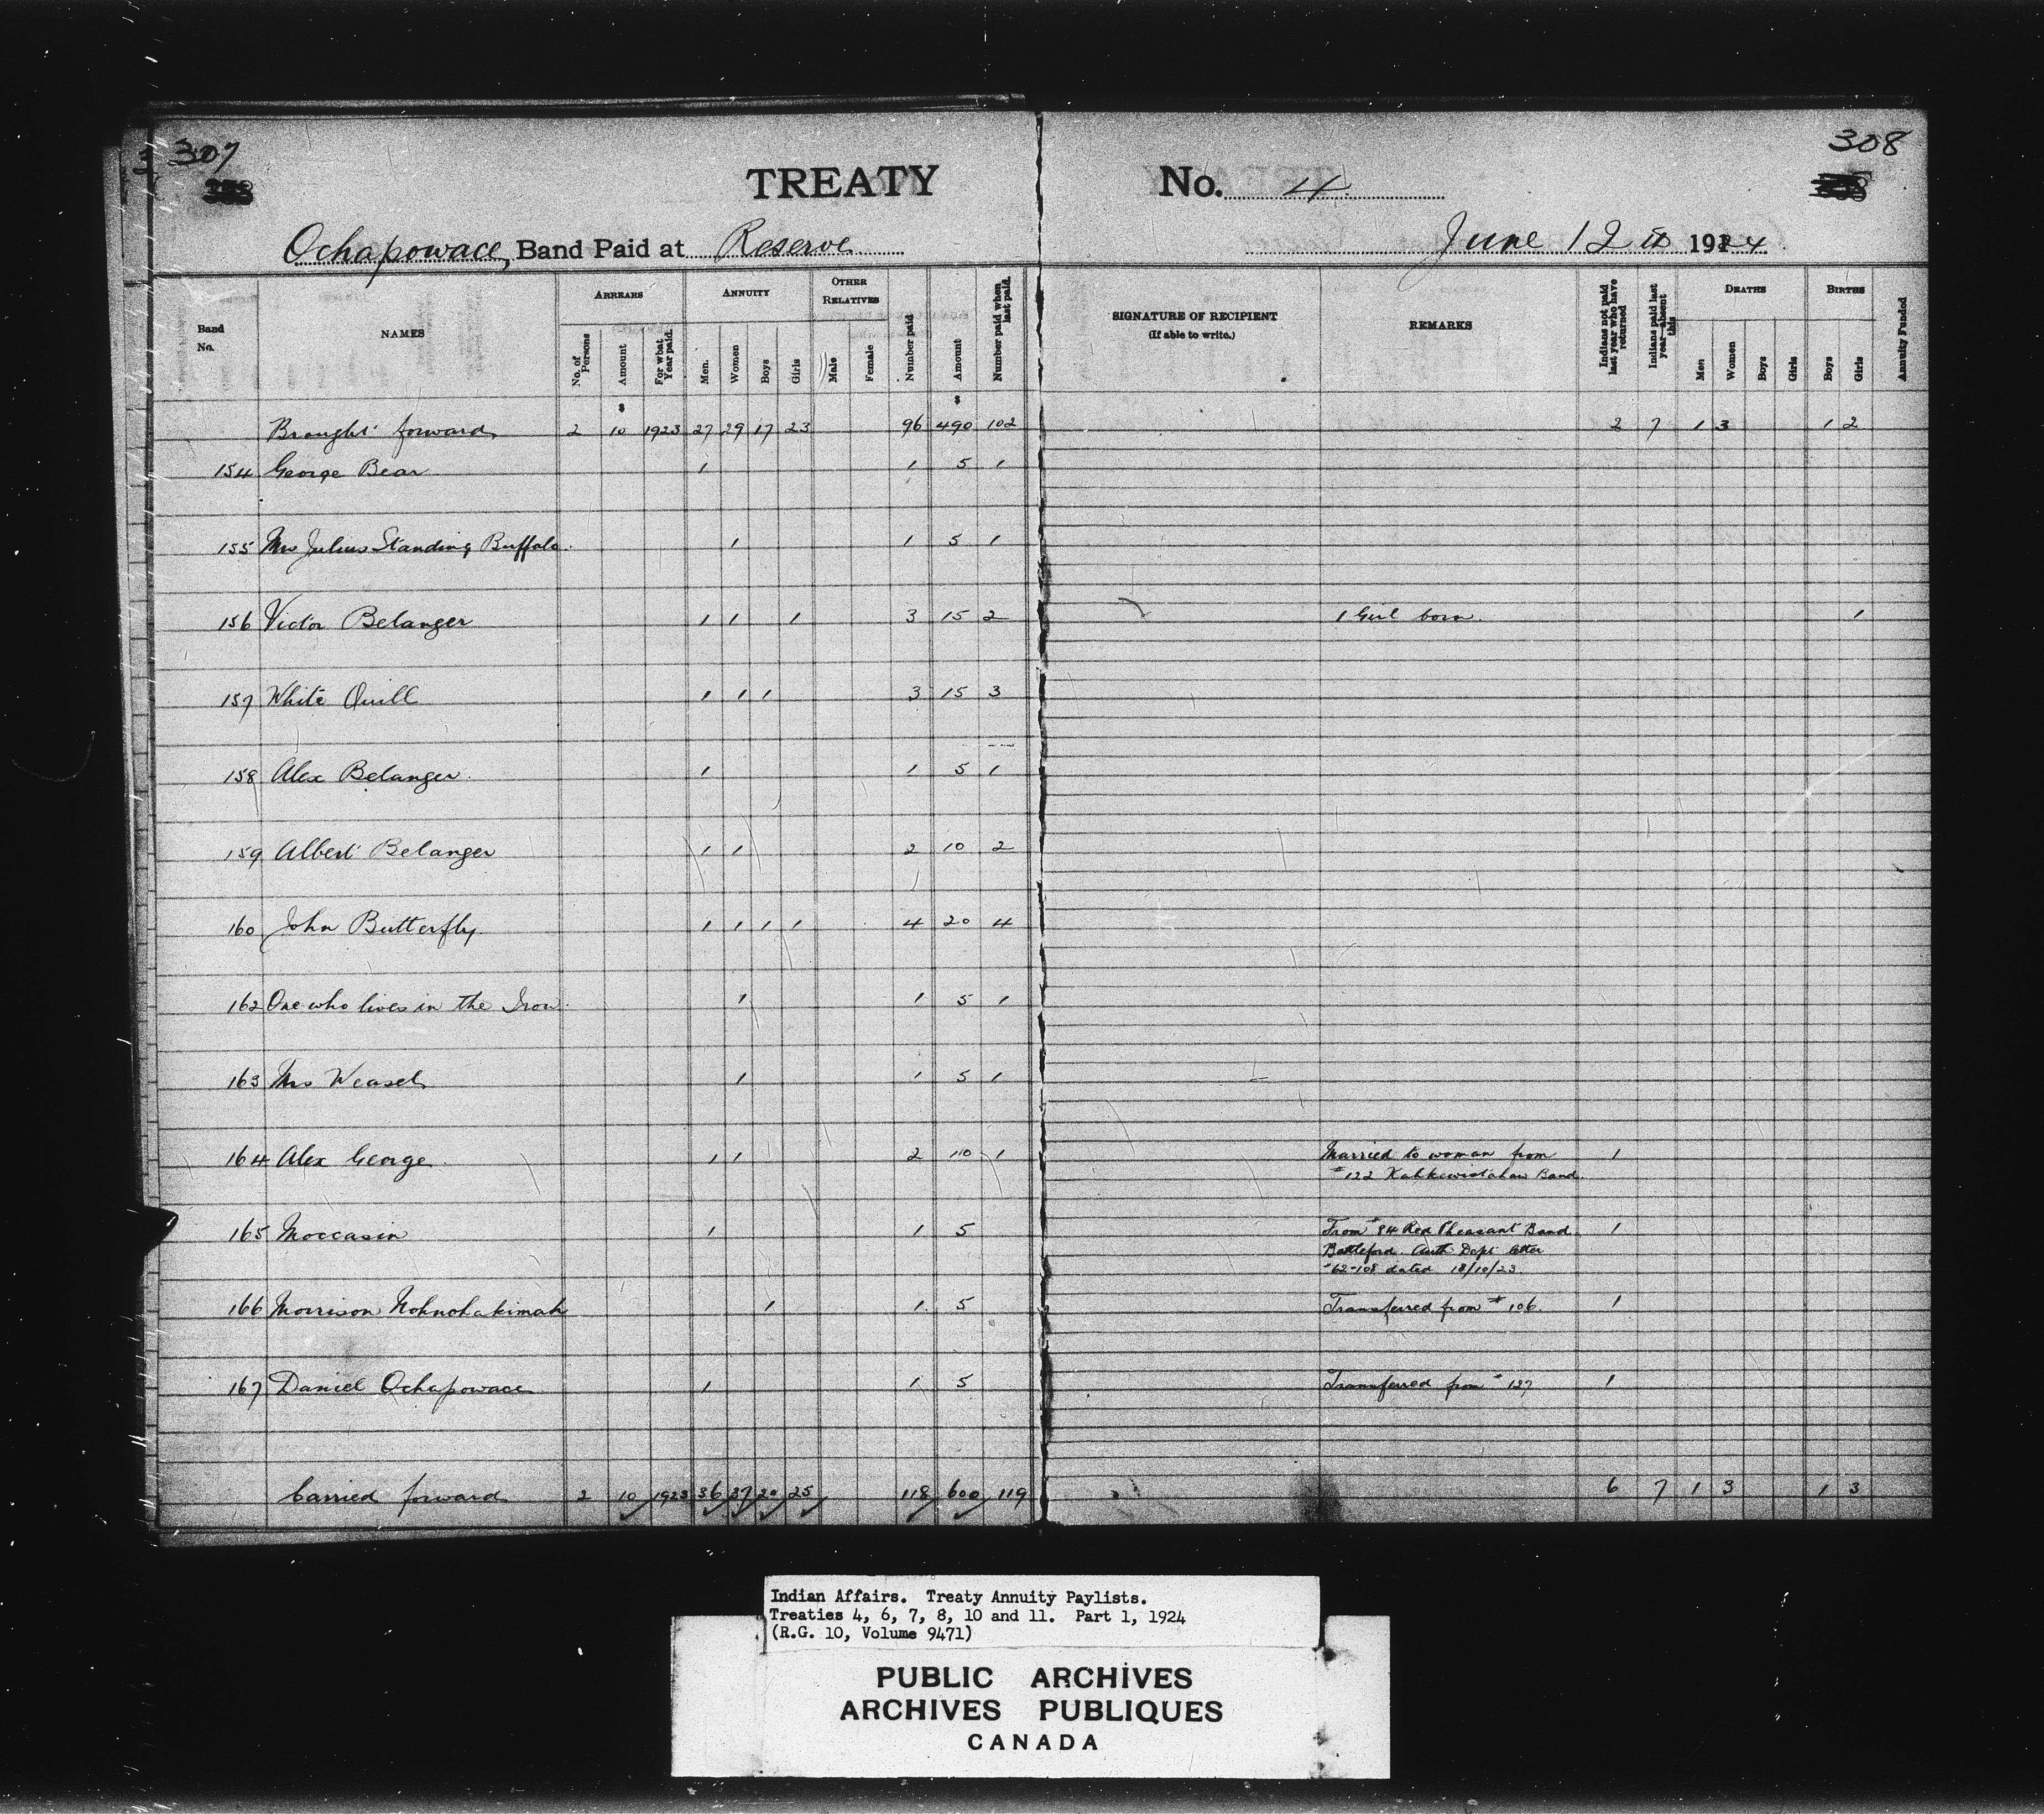 307
308
TREATY No. 4
Ochapowace Band Paid at Reserve June 12th 1924
Band No.
NAMES
ARREARS
No. of Persons
Amount
For what Year paid.
ANNUITY
Men.
Women
Boys
Girls
OTHER RELATIVES
Male
Female
Number paid
Amount
Number paid when last paid.
SIGNATURE OF RECIPIENT
(If able to write.)
REMARKS
Indians not paid last year who have returned
Indians paid last year absent this
DEATHS
Men
Women
Boys
Girls
BIRTHS
Boys
Girls
Annuity Funded
$ $
Brought forward 2 10 1923 27 29 17 23 96 490 102 2 7 1 3 1 2
154 George Bear 1 1 5 1
155 Mrs Julius Standing Buffalo 1 1 5 1
156 Victor Belanger 1 1 1 3 15 2 1 Girl born. 1
157 White Quill 1 1 1 3 15 3
158 Alex Belanger 1 1 5 1
159 Albert Belanger 1 1 2 10 2
160 John Butterfly 1 1 1 1 4 20 4
162 One who lives in the Iron 1 1 5 1
163 Mrs Weasel 1 1 5 1
164 Alex George 1 1 2 10 1 Married to woman from 1
#122 Kahkewistahaw Band.
165 Moccasin 1 1 5 From #84 Red Pheasant Band 1
Battleford. Auth Dept letter
#62-108 dated 18/10/23
166 Morrison Nohnohakimah 1 1 5 Transferred from #106. 1
167 Daniel Ochapowace 1 1 5 Transferred from #127 1
Carried forward 2 10 1923 36 37 20 25 118 600 119 6 7 1 3 1 3
Indian Affairs. Treaty Annuity Paylists.
Treaties 4, 6, 7, 8, 10 and 11. Part 1, 1924
(R.G. 10, Volume 9471)
PUBLIC ARCHIVES
ARCHIVES PUBLIQUES
CANADA